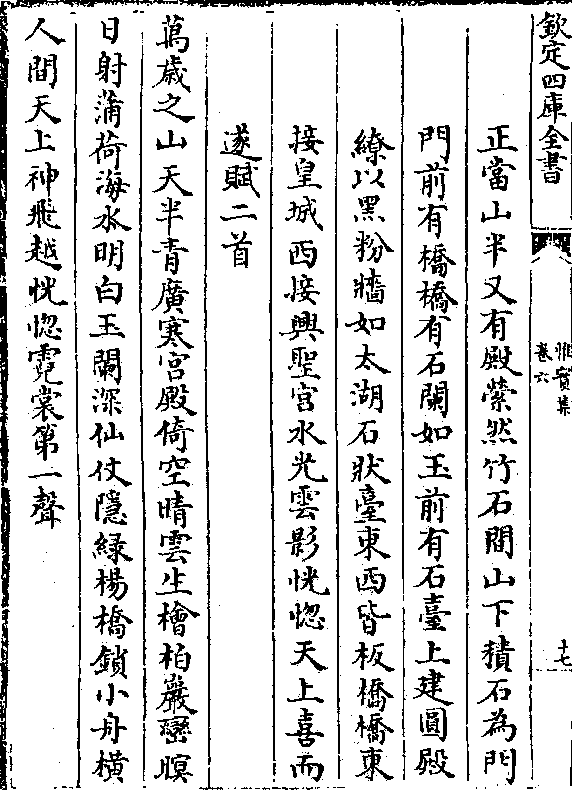 欽定四庫全書
惟實集
卷六
十七
正當山半又有殿縈然竹石間山下積石為門
門前有橋橋有石闌如玉前有石臺上建圓殿
繚以黑粉牆如太湖石狀臺東西皆板橋橋東
接皇城西接興聖宮水光雲影恍惚天上喜而
遂賦二首
萬歲之山天半青廣寒宮殿倚空晴雲生檜柏巖巒暝
日射蒲荷海水明白玉闌深仙仗隱綠楊橋鎖小舟橫
人間天上神飛越恍惚霓裳第一聲